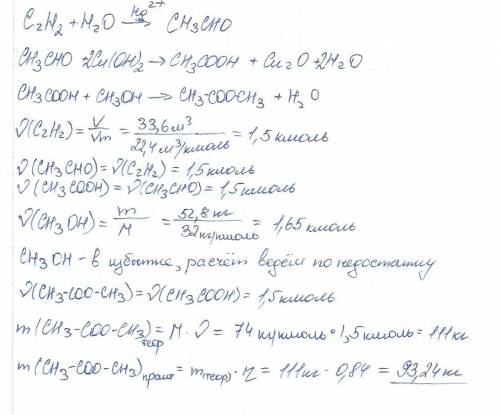 C₂H₂ + H₂O —Hg²⁺→ CH₃CHO
CH₃CHO + 2Cu(OH)₂ → CH₃COOH + Cu₂O + 2H₂O
CH₃COOH + CH₃OH → CH₃-COOCH₃ + H₂O
ν(C₂H₂) = V/Vm = 33,6 м³ / 22,4 м³/кмоль = 1,5 кмоль
ν(CH₃CHO) = ν(C₂H₂) = 1,5 кмоль
ν(CH₃COOH) = ν(CH₃CHO) = 1,5 кмоль
ν(CH₃OH) = m/M = 52,8 кг / 32 кг/кмоль = 1,65 кмоль
CH₃OH - в избытке, расчёт ведём по недостатку
ν(CH₃-COO-CH₃) = ν(CH₃COOH) = 1,5 кмоль
m(CH₃-COO-CH₃)теор = M · ν = 74 кг/кмоль · 1,5 кмоль = 111 кг
m(CH₃-COO-CH₃)практ = m(теор) · η = 111 кг · 0,84 = 93,24 кг